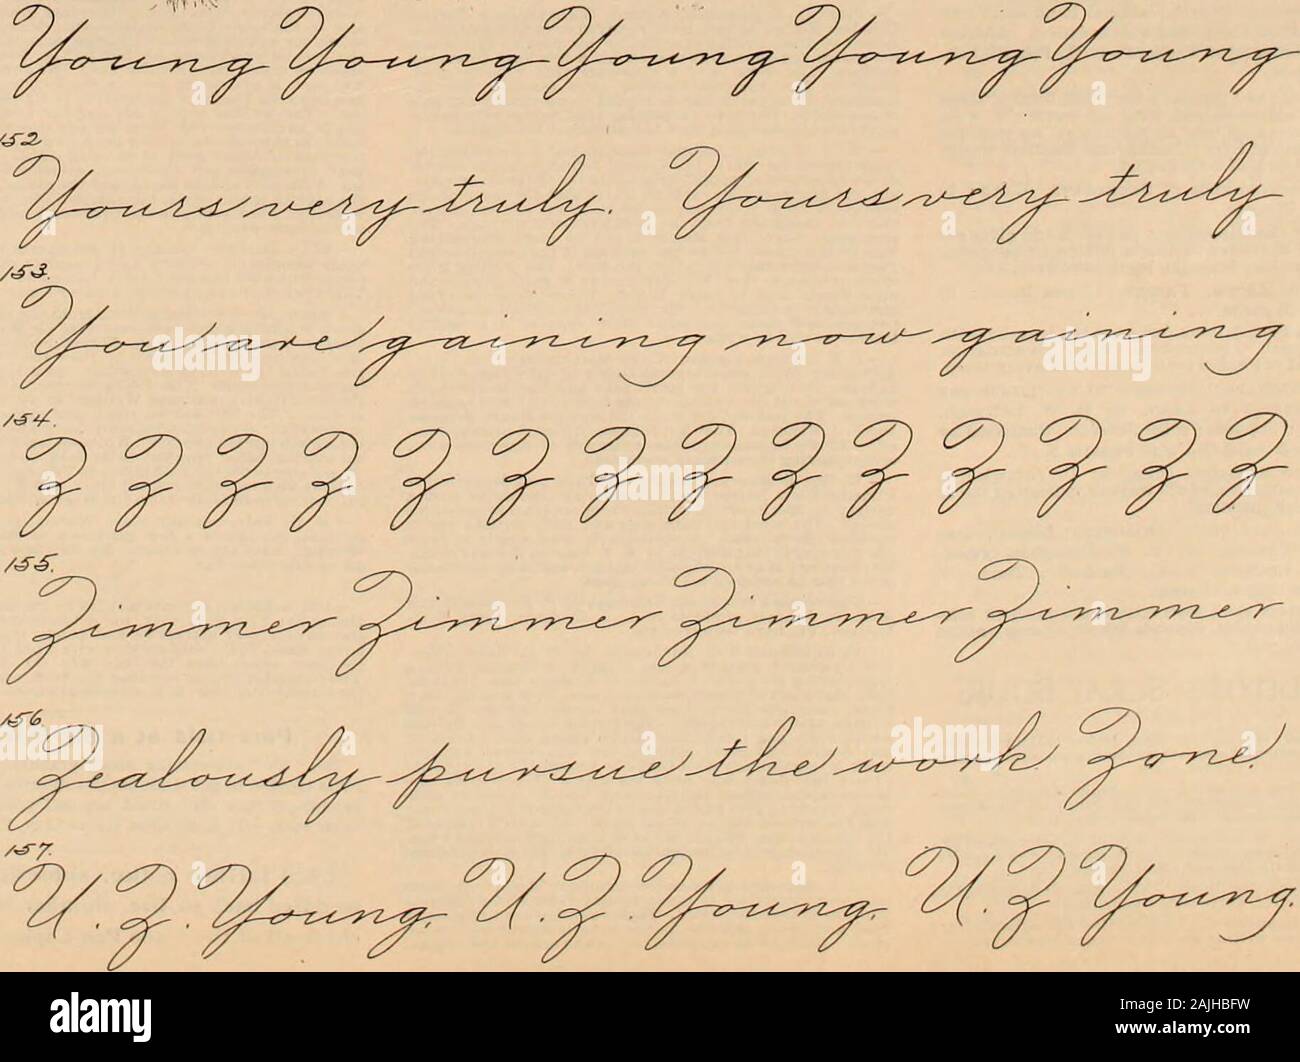 Young Young Young Young Young
152
Yours very truly. Yours very truly
153.
You are gaining now gaining
154.
Z Z Z Z Z Z Z Z Z Z Z Z Z Z
155.
Zimmer Zimmer Zimmer Zimmer
156.
Zealously pursue the work Zone.
157.
U. Z. Young. U. Z. Young. U. Z. Young.
alamy
Image ID: 2AJHBFW
www.alamy.com